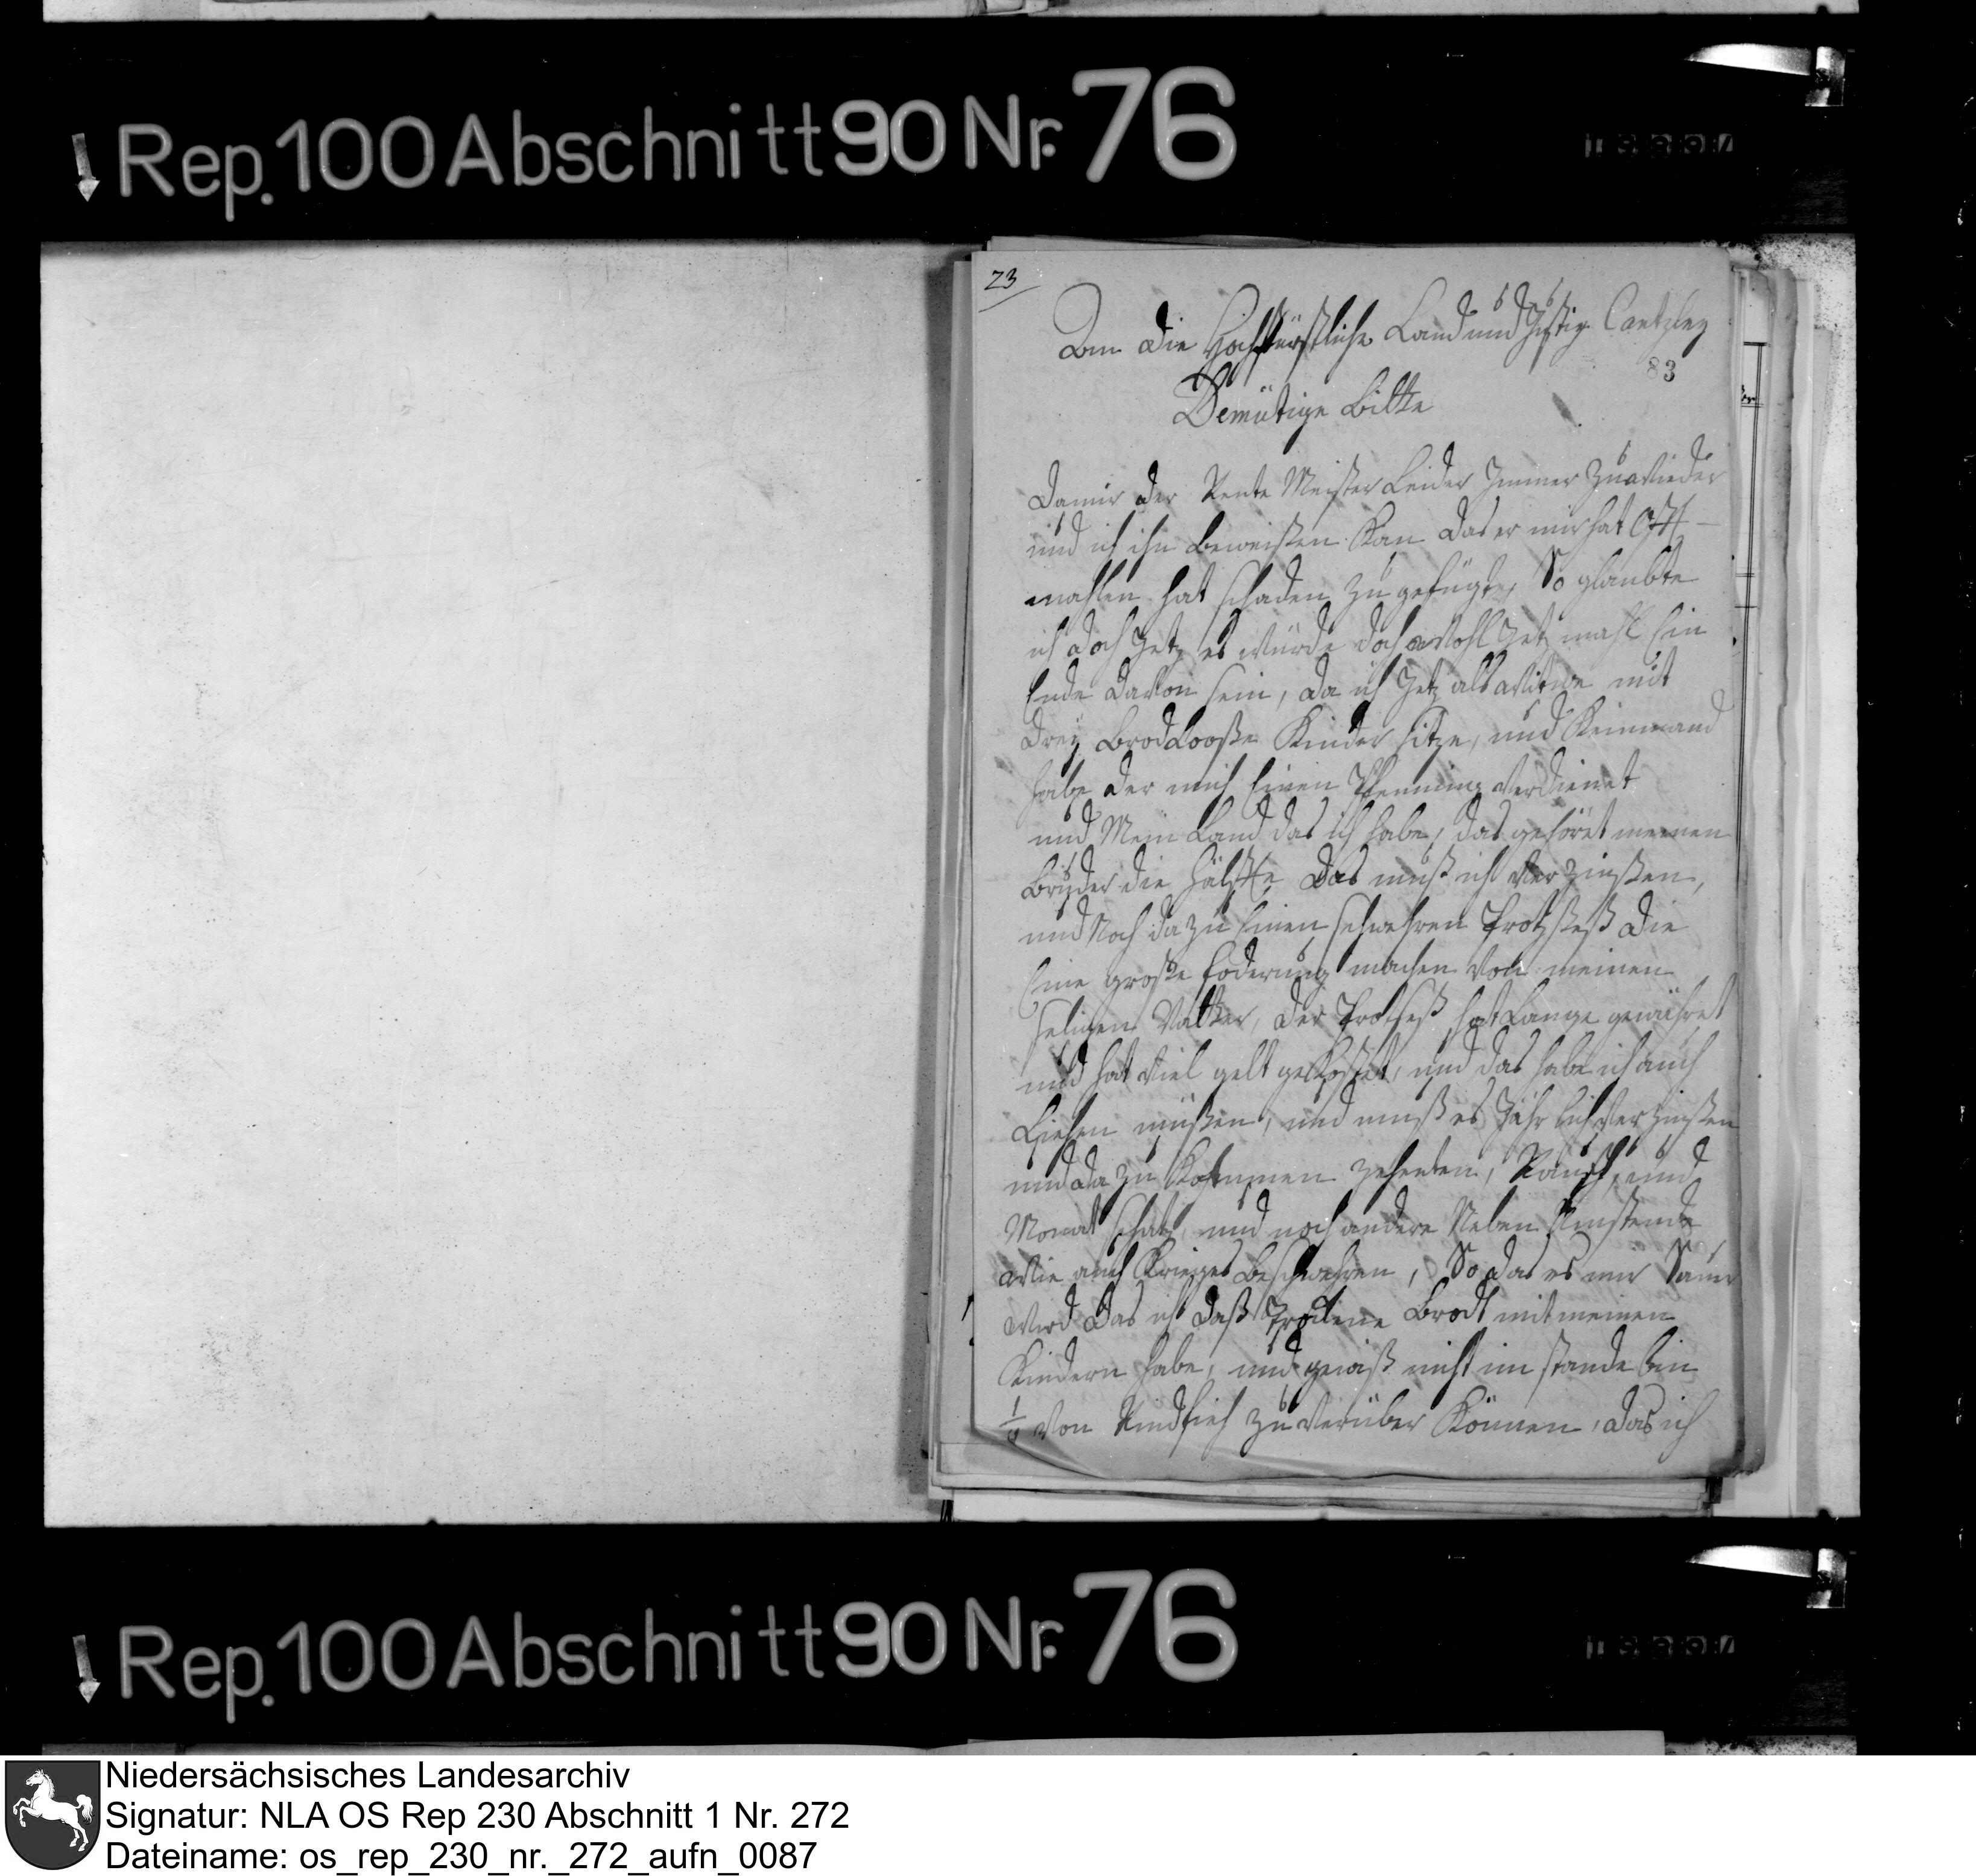 Rep. 100 Abschnitt 90 Nr. 76
23
An die Hochfürstliche Land und Justiz Cantzley
83
Demütige Bitte
Da mir der Rente Meister Leider Immer zu wieder
und ich ihn beweißen Kan das er mir hat Oft
mahlen hat schaden zu gefügt, So glaubte
ich doch Jetz es würde doch wohl Jetz mahl Ein
Ende davon sein, da ich Jetz als witwe mit
drey brodlooße Kinder sitze, und Keinmand
habe der mich Einen Pfenning verdienet
und Mein Land das ich habe, das gehöret meinen
Bruder die hälfte das muß ich verzinßen,
und Noch dazu Einen schwehren Protzseß die
Eine große foderung machen von meinen
seligen Vatter, der Protseß hat Lange gewähret
und hat viel gelt gekostet, und das habe ich auch
Liehen müßen, und muß es Jährlich verzinßen
und da zu Kommen zehenten, Rauch, und
Monat schatz und noch andere Neben
wie auch Krieges beschwehren, So das es mir Sauer
wird das ich daß Trockene Brodt mit meinen
Kindern habe, und gewiß nicht im stande bin
von Rindfieh zu Können, das ich
Rep. 100 Abschnitt 90 Nr. 76
Niedersächsisches Landesarchiv
Signatur: NLA OS Rep 230 Abschnitt 1 Nr. 272
Dateiname: os_rep_230_nr._272_aufn_0087